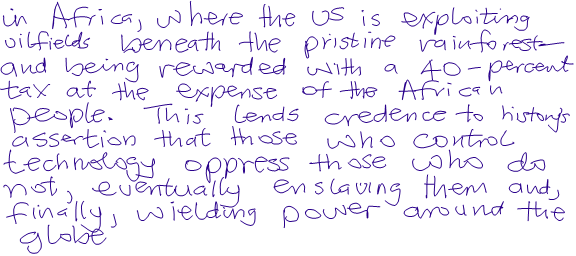 in Africa, where the US is exploiting
oilfields beneath the pristine rainforest
and being rewarded with a 40-percent
tax at the expense of the African
people. This lends credence to history's
assertion that those who control
technology oppress those who do
not, eventually enslaving them and,
finally, wielding power around the
globe